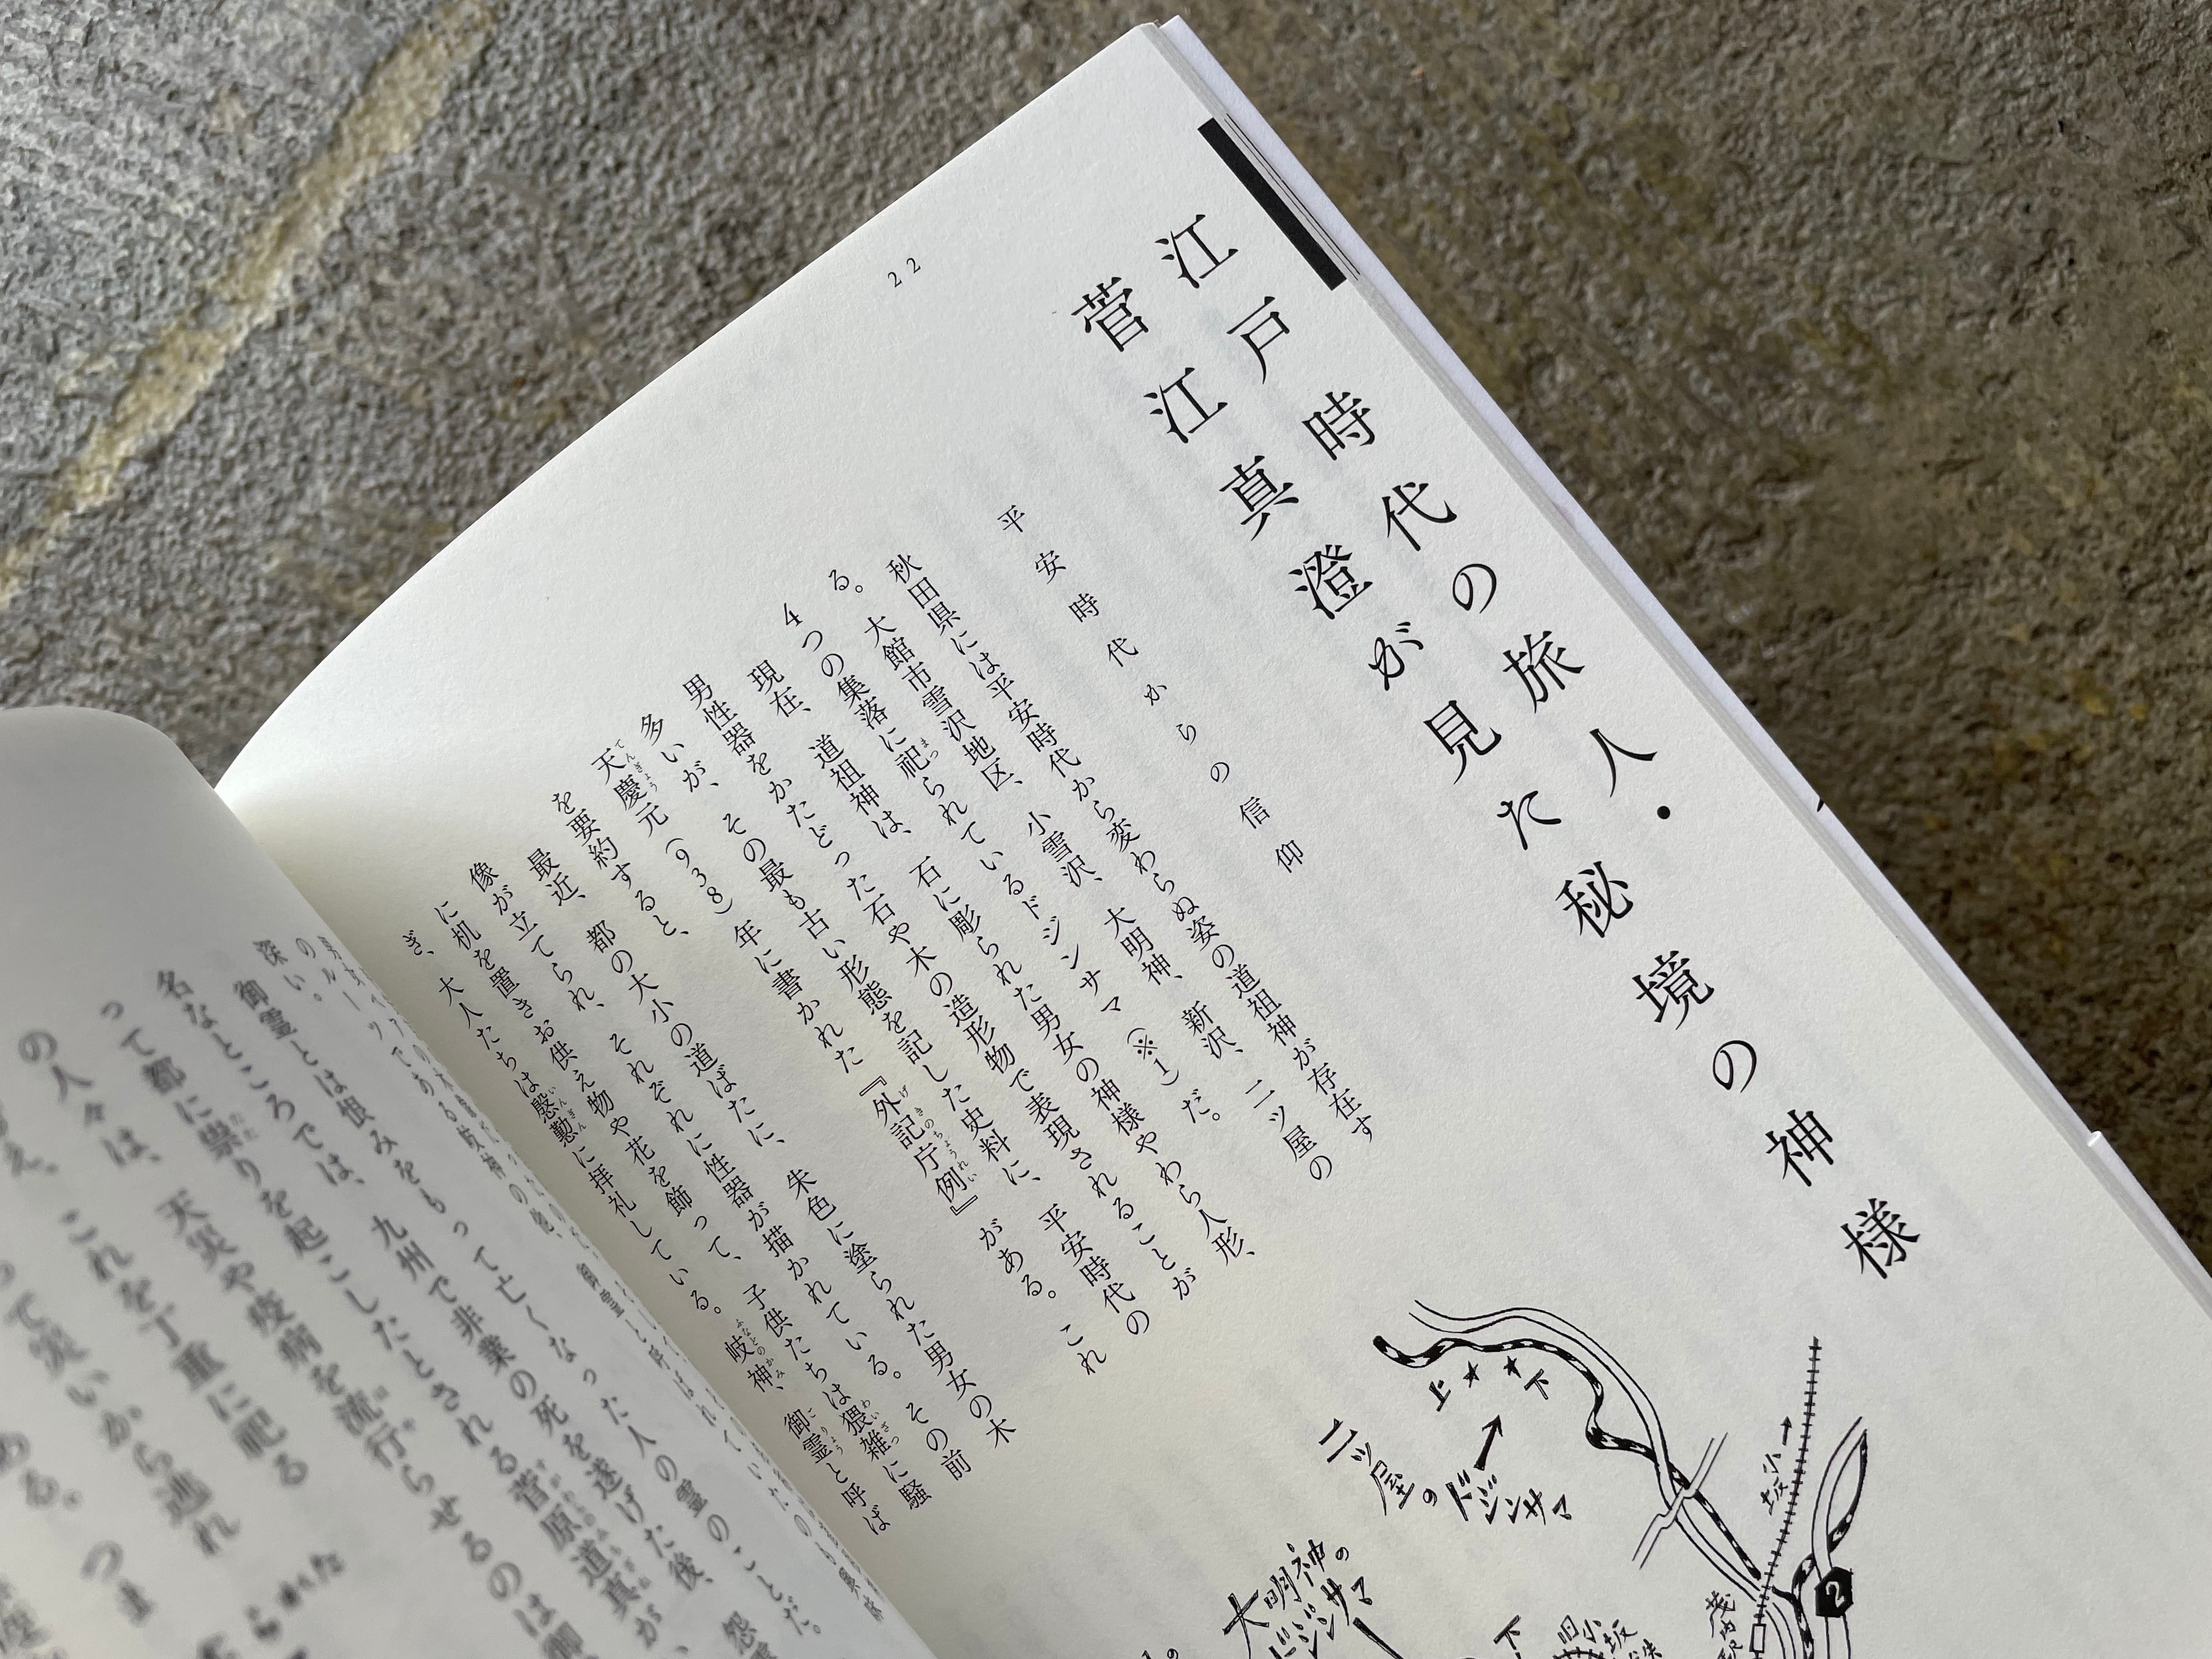 22
江戸時代の旅人・
菅江真澄が見た秘境の神様
平安時代からの信仰
秋田県には平安時代から変わらぬ姿の道祖神が存在す
る。大館市雪沢地区、小雪沢、大明神、新沢、二ッ屋の
4つの集落に祀られているドジンサマ（※1）だ。
現在、道祖神は、石に彫られた男女の神様やわら人形、
男性器をかたどった石や木の造形物で表現されることが
多いが、その最も古い形態を記した史料に、平安時代の
天慶元（938）年に書かれた『外記庁例』がある。これ
を要約すると、
最近、都の大小の道ばたに、朱色に塗られた男女の木
像が立てられ、それぞれに性器が描かれている。その前
に机を置きお供え物や花を飾って、子供たちは猥雑に騒
ぎ、大人たちは慇懃に拝礼している。岐神、御霊と呼ば
深い。
御霊とは恨みをもって亡くなった人の霊のことだ。
名なところでは、九州で非業の死を遂げた後、怨霊
って都に祟りを起こしたとされる菅原道真が、
の人々は、天災や疫病を流行らせるのは御
これを丁重に祀る
って災いから逃れ
ある。つま
二ッ屋のドジンサマ
上
下
小坂
2
大明神のドジンサマ
下
旧小坂